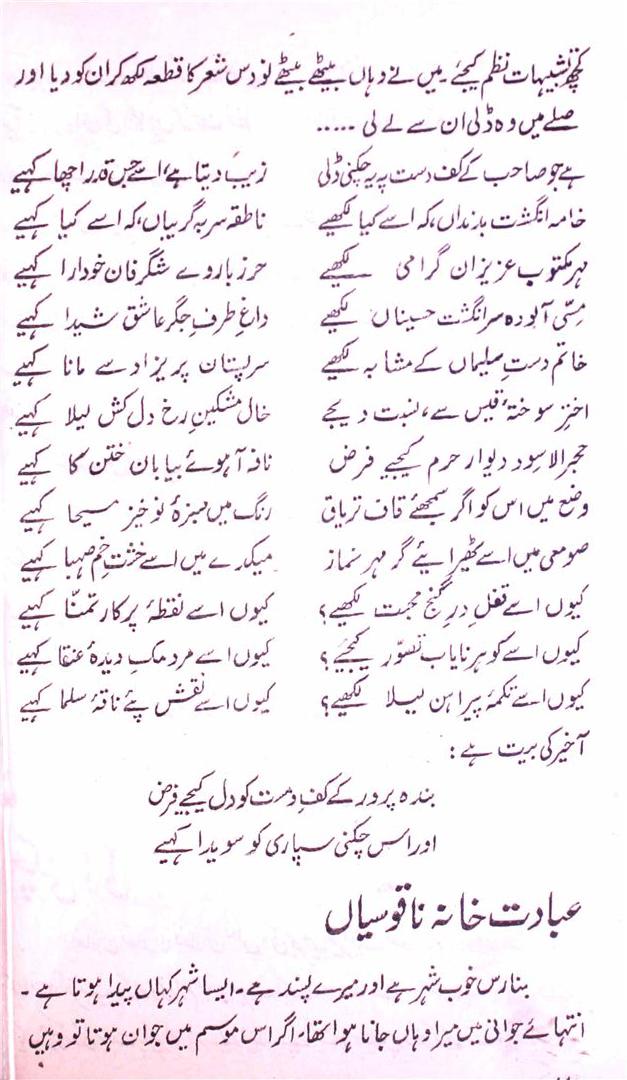 کچھ تشبیہات نظم کیجئے۔ میں نے وہاں بیٹھے بیٹھے نو دس شعر کا قطعہ لکھ کر ان کو دیا اور
صلے میں وہ ڈلی ان سے لے لی .....
ہے جو صاحب کے کف دست پہ یہ چکنی ڈلی زیب دیتا ہے، اسے جس قدر اچھا کہیے
خامہ انگشت بدنداں، کہ اسے کیا لکھیے ناطقہ سر بہ گریباں، کہ اسے کیا کہیے
مہر مکتوب عزیزان گرامی لکھیے حرز بازوے شگرفان خود آرا کہیے
مسّی آلودہ سر انگشت حسیناں لکھیے داغ طرفِ جگر عاشق شیدا کہیے
خاتم دستِ سلیماں کے مشابہ لکھیے سر پستان پریزاد سے مانا کہیے
اختر سوختۂ قیس سے، نسبت دیجے خال مشکینِ رخ دل کش لیلا کہیے
حجر الاسود دیوار حرم کیجیے فرض نافہ آہوئے بیابان ختن کا کہیے
وضع میں اس کو اگر سمجھئے قاف تریاق رنگ میں سبزۂ نوخیز مسیحا کہیے
صومعی میں اسے ٹھیرایئے گر مہر نماز میکدے میں اسے خشت خم صہبا کہیے
کیوں اسے قفل درِ گنج محبت لکھیے؟ کیوں اسے نقطۂ پرکار تمنّا کہیے
کیوں اسے گوہر نایاب تصوّر کیجیے؟ کیوں اسے مردمک دیدۂ عنقا کہیے
کیوں اسے تکمۂ پیراہن لیلا لکھیے؟ کیوں اسے نقش پئے ناقۂ سلما کہیے
آخیر کی بیت ہے:
بندہ پرور کے کف دست کو دل کیجیے فرض
اور اس چکنی سپاری کو سویدا کہیے
عبادت خانہ ناقوسیاں
بنارس خوب شہر ہے اور میرے پسند ہے۔ ایسا شہر کہاں پیدا ہوتا ہے۔
انتہائے جوانی میں میرا وہاں جانا ہوا تھا۔ اگر اس موسم میں جوان ہوتا تو وہیں